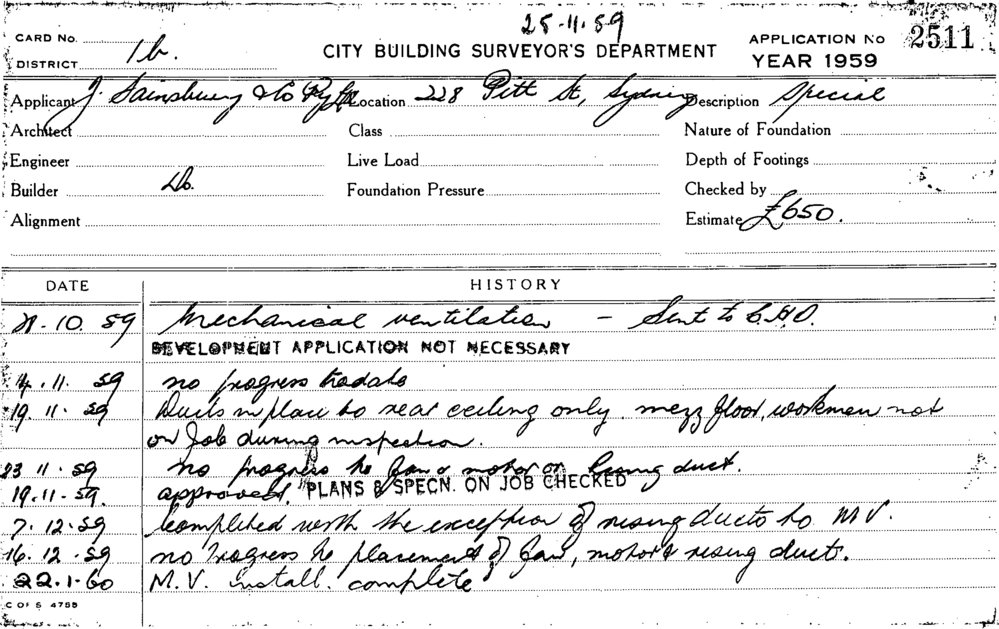 25-11.59
CARD No.
DISTRICT 1b.
CITY BUILDING SURVEYOR'S DEPARTMENT
APPLICATION No 2511
YEAR 1959
Applicant J. Sainsbury & Co Pty Ltd Location 228 Pitt St, Sydney Description Special
Architect Class Nature of Foundation
Engineer Live Load Depth of Footings
Builder Do. Foundation Pressure Checked by
Alignment Estimate £650.
DATE HISTORY
.10.59 Mechanical ventilation - Sent to C.H.O.
DEVELOPMENT APPLICATION NOT NECESSARY
4.11.59 no progress to date
19.11.59 Ducts in place to rear ceiling only. mezz floor, workmen not
on Job during inspection.
23 11.59 no progress to fan & motor or rising duct.
19.11.59. approved. PLANS & SPECN. ON JOB CHECKED
7.12.59 Completed with the exception of rising ducts to M.V.
16.12.59 no progress to placement of fan, motor & rising duct.
22.1.60 M.V. Install. complete
C OF S 4755